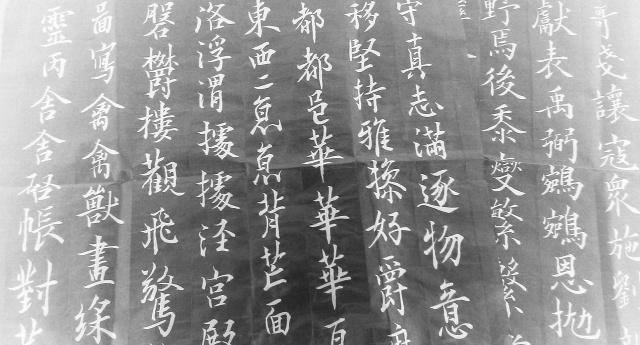 讓寇衆施劉
獻表禹弼鵷鵷恩拋
野焉後黍燮繁
守真志滿逐物意
移堅持雅操好爵
都都邑華華華百
東西二背芒面
洛浮渭據據涇宮殿
鬱樓觀飛驚
啚寫禽禽獸畫綵
靈丙舍舍啓帳對